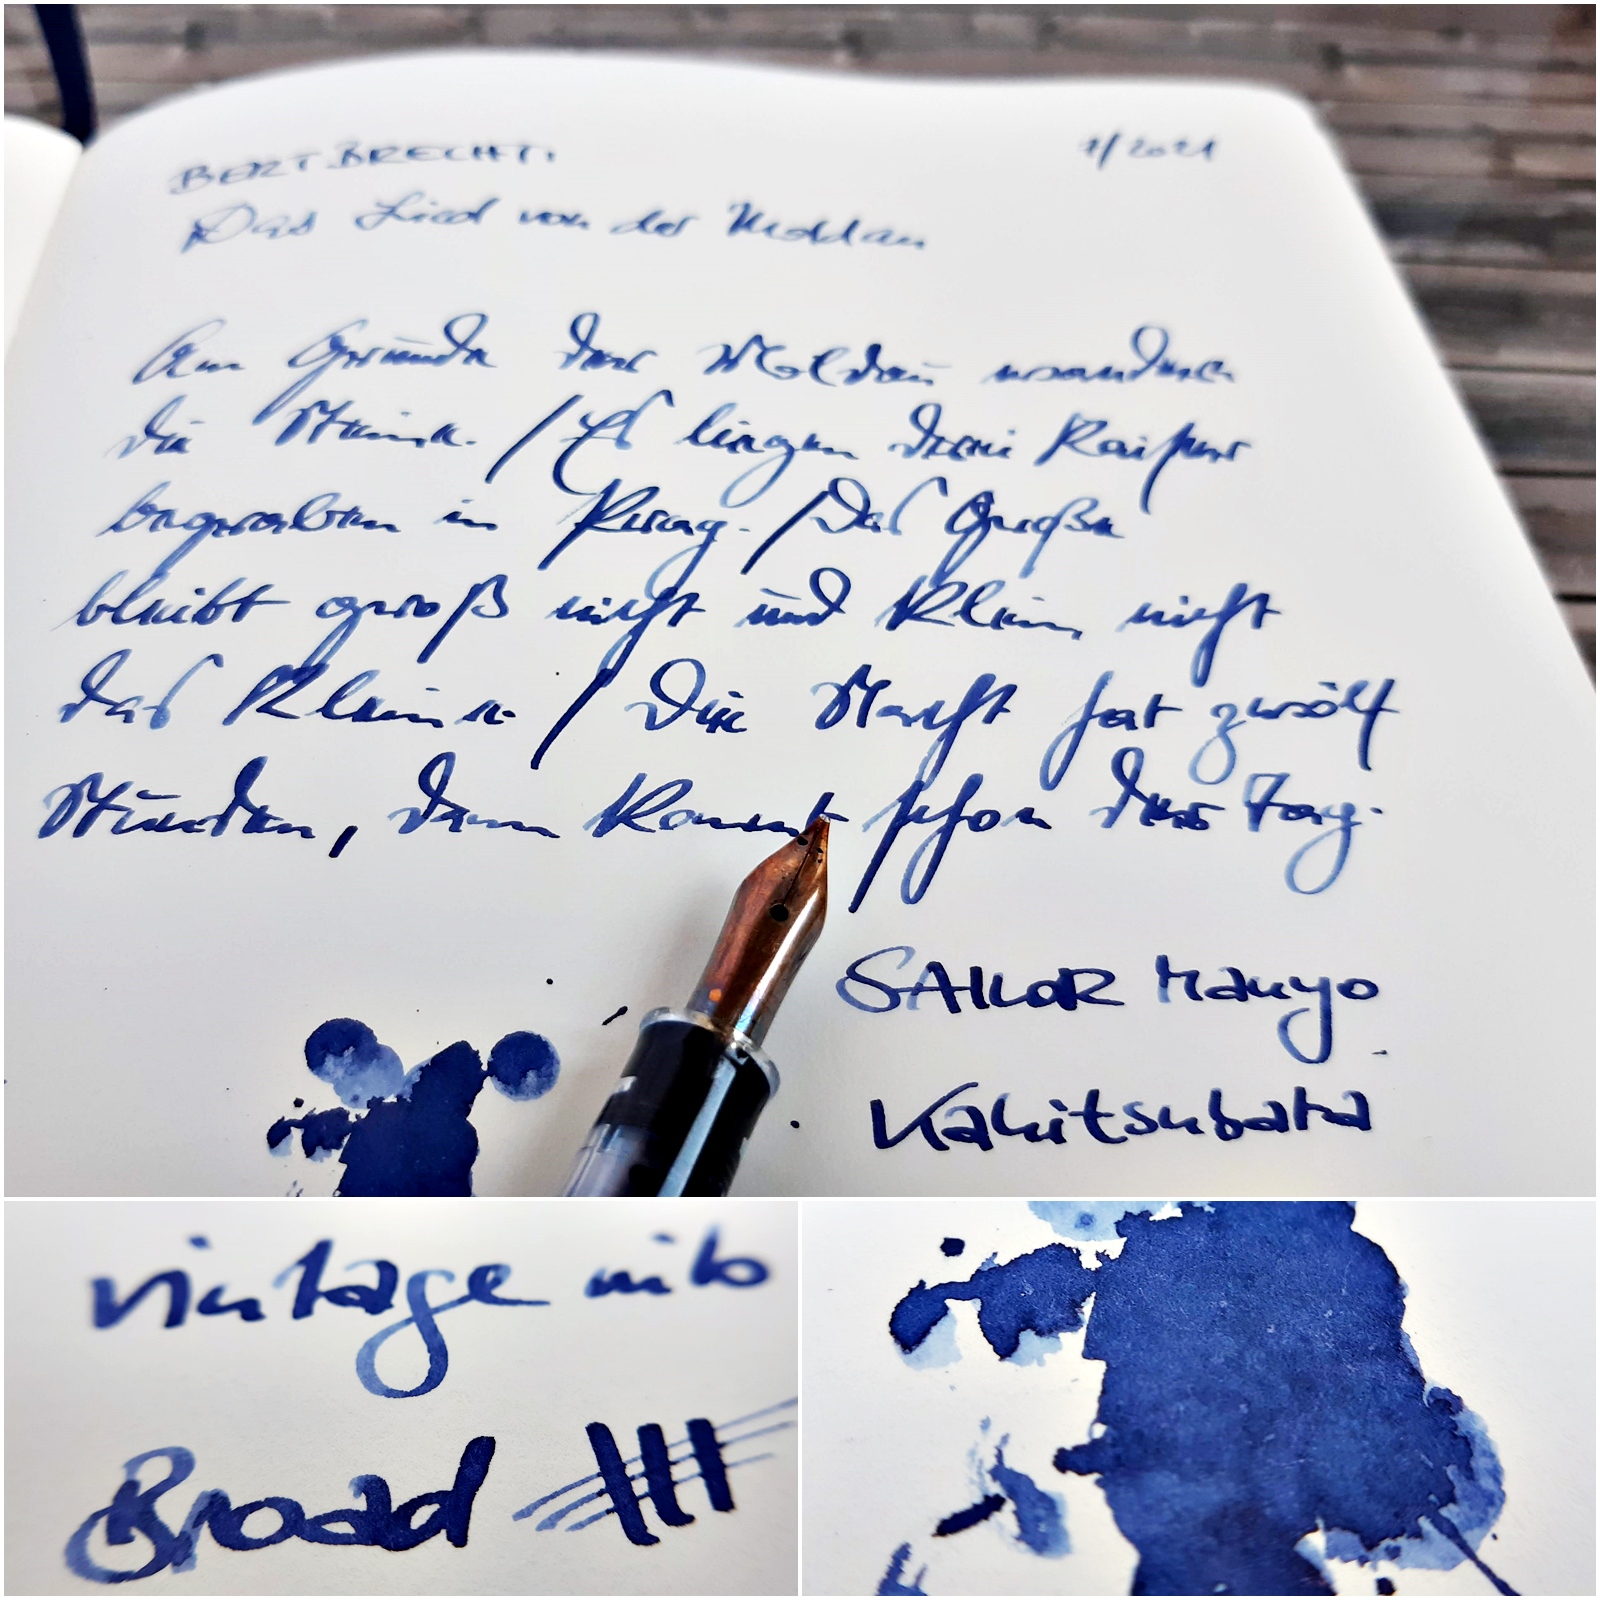 BERT BRECHT:
1/2021
Das Lied von der Moldau
Am Grunde der Moldau wandern
die Steine. / Es liegen drei Kaiser
begraben in Prag. / Das Große
bleibt groß nicht und klein nicht
das Kleine / Die Nacht hat zwölf
Stunden, dann kommt schon der Tag.
SAILOR Manyo
Kakitsubata
vintage nib
Broad